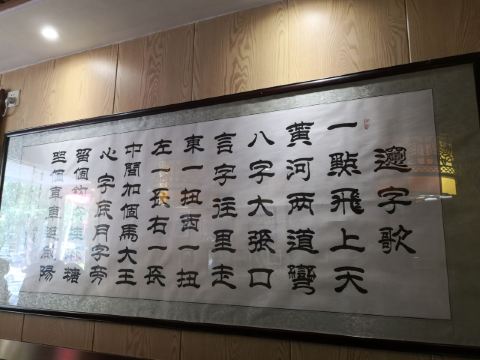 字歌
一點飛上天
黃河两道彎
八字大張口
言字往里走
東一扭西一扭
左一長右一長
中間加個馬大王
心字底月字旁
留個糖
坐個車車逛咸陽